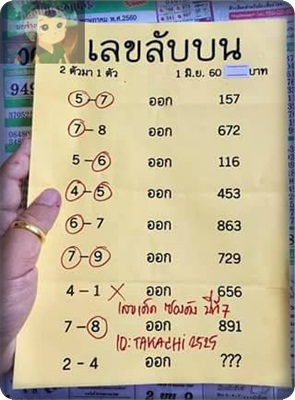 เลขลับบน
2 ตัวมา 1 ตัว 1 มิ.ย. 60 บาท
5-7 ออก 157
7-8 ออก 672
5-6 ออก 116
4-5 ออก 453
6-7 ออก 863
7-9 ออก 729
4-1 X ออก 656
เลขเด็ด ซองดัง ปีที่7
7-8 ออก 891
ID: TAKACHI 2525
2-4 ออก ???